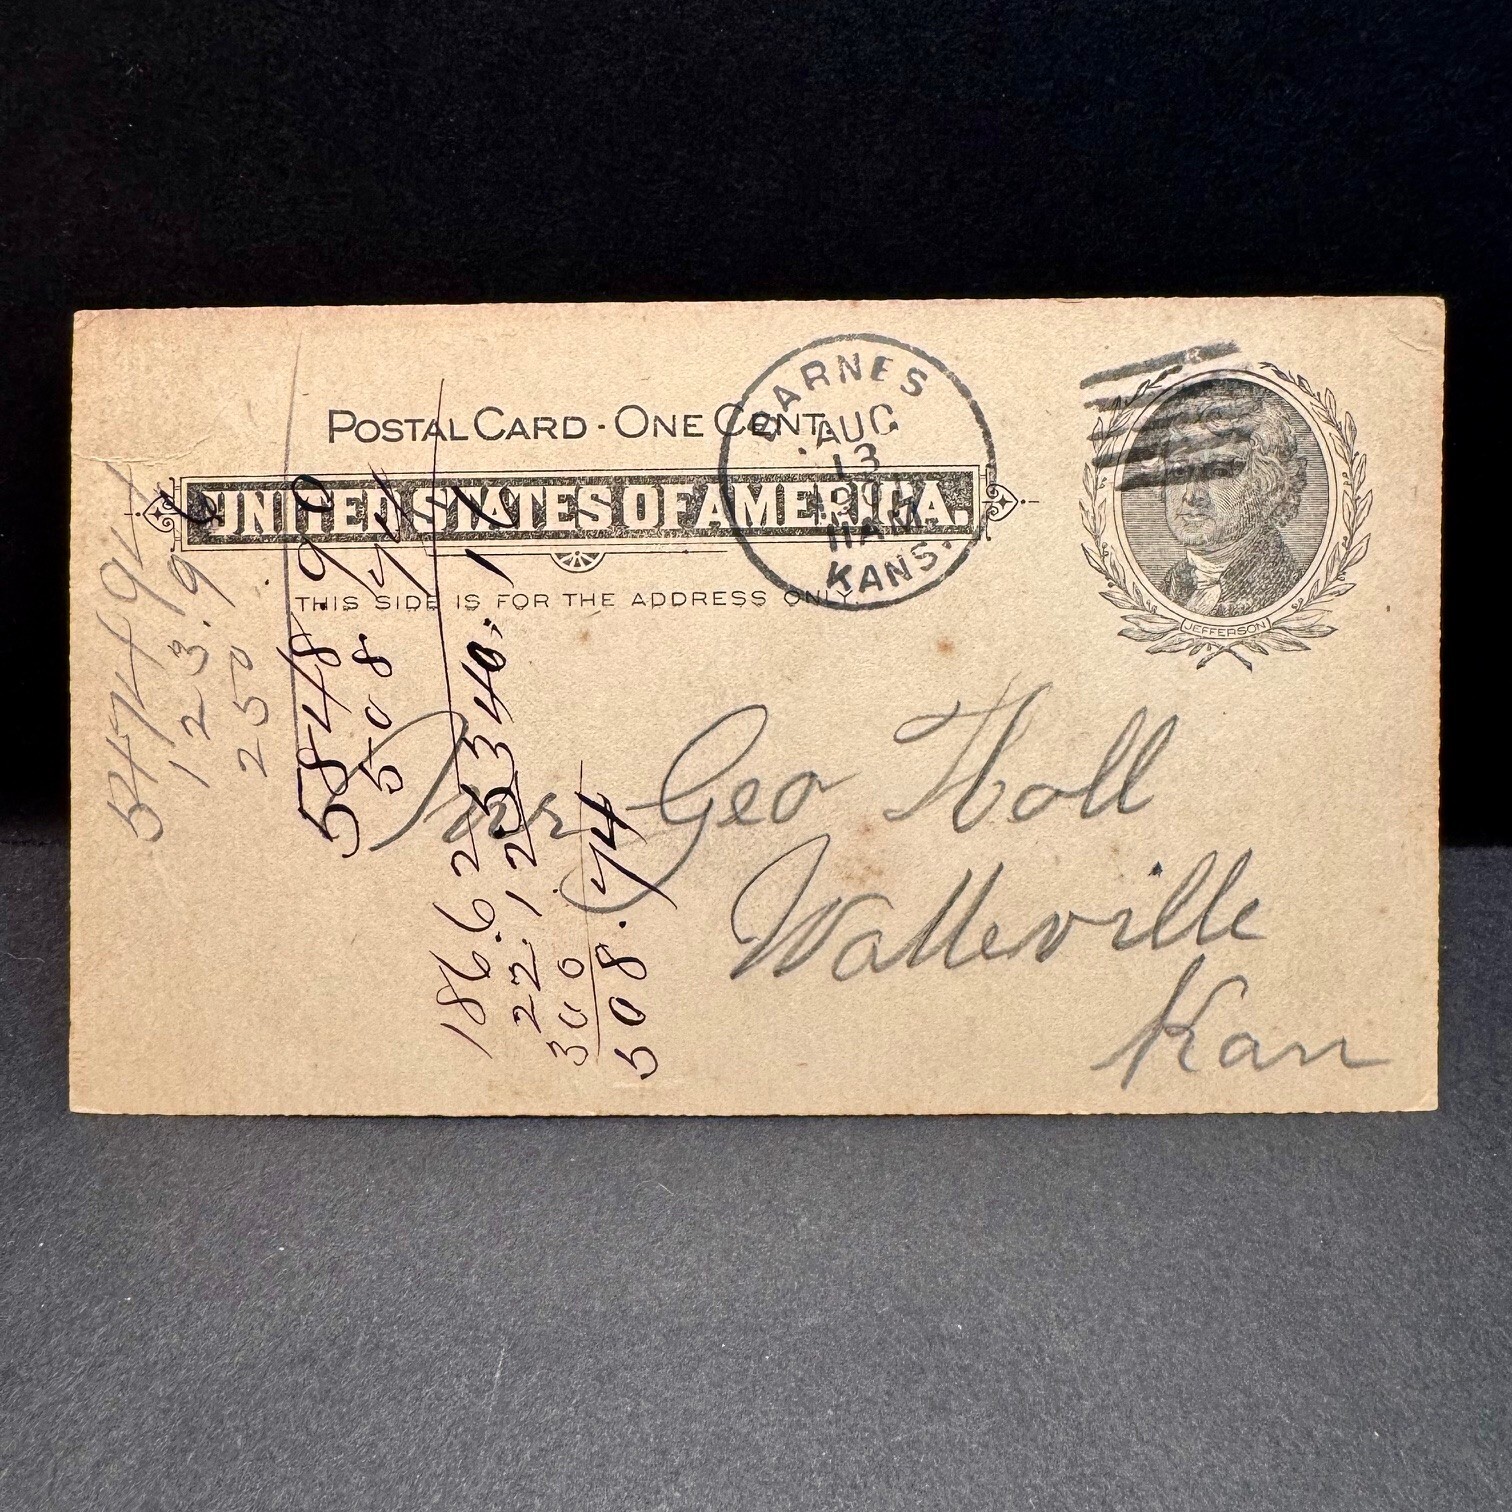 POSTAL CARD - ONE CENT.
UNITED STATES OF AMERICA.
THIS SIDE IS FOR THE ADDRESS ONLY.
BARNES
AUG
13
11AM
KANS.
JEFFERSON
Geo Holl
Watteville
Kan
5474 94
123.96
250
5848 90
508 74
5340.16
186.62
22.12
300
508.74